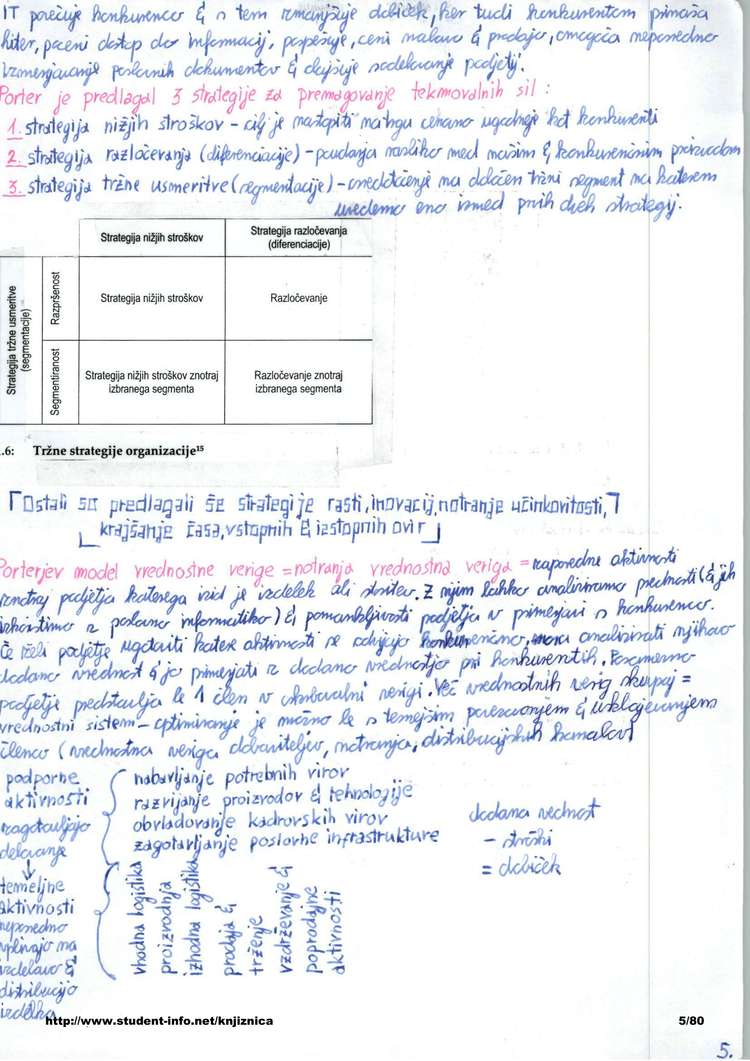 IT povečuje konkurenco & s tem zmanjšuje dobiček, ker tudi konkurentom prinaša
hiter, poceni dostop do informacij, pospešuje, ceni nabavo & prodajo, omogoča neposredno
izmenjavanje poslovnih dokumentov & olajšuje sodelovanje podjetij.
Porter je predlagal 3 strategije za premagovanje tekmovalnih sil:
1. strategija nižjih stroškov – cilj je nastopiti na trgu cenovno ugodneje kot konkurenti
2. strategija razločevanja (diferenciacije) – poudarja razliko med našim & konkurenčnim proizvodom
3. strategija tržne usmeritve (segmentacije) – osredotočenje na določen tržni segment na katerem
uvedemo eno izmed prvih dveh strategij.
Strategija nižjih stroškov
Strategija razločevanja
(diferenciacije)
Strategija tržne usmeritve
(segmentacije)
Razpršenost
Strategija nižjih stroškov
Razločevanje
Segmentiranost
Strategija nižjih stroškov znotraj
izbranega segmenta
Razločevanje znotraj
izbranega segmenta
.6: Tržne strategije organizacije15
Ostali so predlagali še strategije rasti, inovacij, notranje učinkovitosti,
krajšanje časa, vstopnih & izstopnih ovir
Porterjev model vrednostne verige = notranja vrednostna veriga = zaporedne aktivnosti
znotraj podjetja katerega izid je izdelek ali storitev. Z njim lahko analiziramo prednosti (& jih
izkoristimo z poslovno informatiko) & pomankljivosti podjetja v primerjavi s konkurenco.
Če želi podjetje ugotoviti katere aktivnosti se odvijajo konkurenčno, mora analizirati njihovo
dodano vrednost & jo primerjati z dodano vrednostjo pri konkurentih. Posamezno
podjetje predstavlja le 1 člen v oskrbovalni verigi. Več vrednostnih verig skupaj =
vrednostni sistem – optimiranje je možno le s temejšim povezovanjem & usklajevanjem
členov (vrednostna veriga dobaviteljev, notranja, distribucijskih kanalov)
podporne
aktivnosti
zagotavljajo
delovanje
nabavljanje potrebnih virov
razvijanje proizvodov & tehnologije
obvladovanje kadrovskih virov
zagotavljanje poslovne infrastrukture
dodana vednost
– stroški
= dobiček
↓
temeljne
aktivnosti
neposredno
vplivajo na
izdelavo &
distribucijo
izdelka
vhodna logistika
proizvodnja
izhodna logistika
prodaja &
trženje
vzdrževanje &
poprodajne
aktivnosti
http://www.student-info.net/knjiznica
5/80
5.